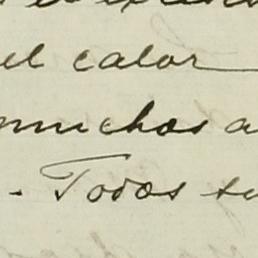 el calor
muchos a
. Todos su